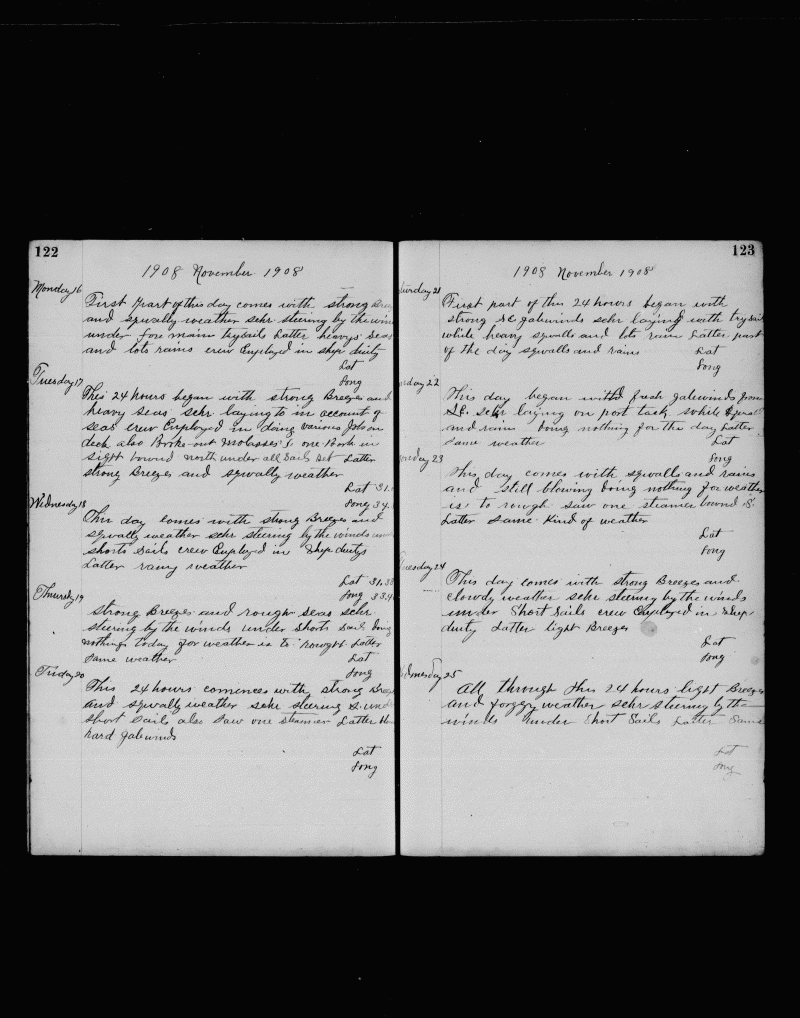 122
1908 November 1908
Monday 16
First part of this day comes with strong Bree
and squally weather schr steering by the win
under fore main trysails Latter heavys Seas
and lots rains crew Employed in ship duity
Lat
Long
Tuesday 17
This 24 hours began with strong Breezes and
heavy seas schr laying to in account of
seas crew Employed in doing various Jobs on
deck also Broke out molasses & one Bark in
sight bound north under all Sails set Latter
strong Breezes and squally weather
Lat 31.
Long 34.
Wednesday 18
This day comes with strong Breezes and
squally weather schr steering by the winds un
shorts Sails crew Employed in Ship dutys
Latter rainy weather
Lat 31.38
Long 33.4
Thursdy 19
strong Breezes and rough seas schr
steering by the winds under shorts Sails Doing
nothings today for weather is to rought Latter
same weather
Lat
Long
Friday 20
This 24 hours comences with strong Breez
and squally weather schr steering by wind
short Sails also Saw one steamer Latter
hard galewinds
Lat
Long
123
1908 November 1908
turday 21
First part of this 24 hours began with
strong SE galewinds schr laying with try sail
while heavy squalls and lots rain Latter part
of the day squalls and rains
Lat
Long
nday 22
This day began with fresh galewinds from
S.E. schr laying on port tack while squal
and rain Doing nothing for the day Latter
same weather
Lat
Long
onday 23
This day comes with squalls and rains
and Still blowing Doing nothing for weather
is to rough saw one steamer bound S.
Latter Same Kind of weather
Lat
Long
Tuesday 24
This day comes with strong Breezes and
clowdy weather schr steering by the winds
under Short Sails crew Employed in Ship
duity Latter light Breezes
Lat
Long
ednesday 25
All through this 24 hours light Breezes
and foggy weather schr steering by the
winds under Short Sails Latter Same
Lat
Long